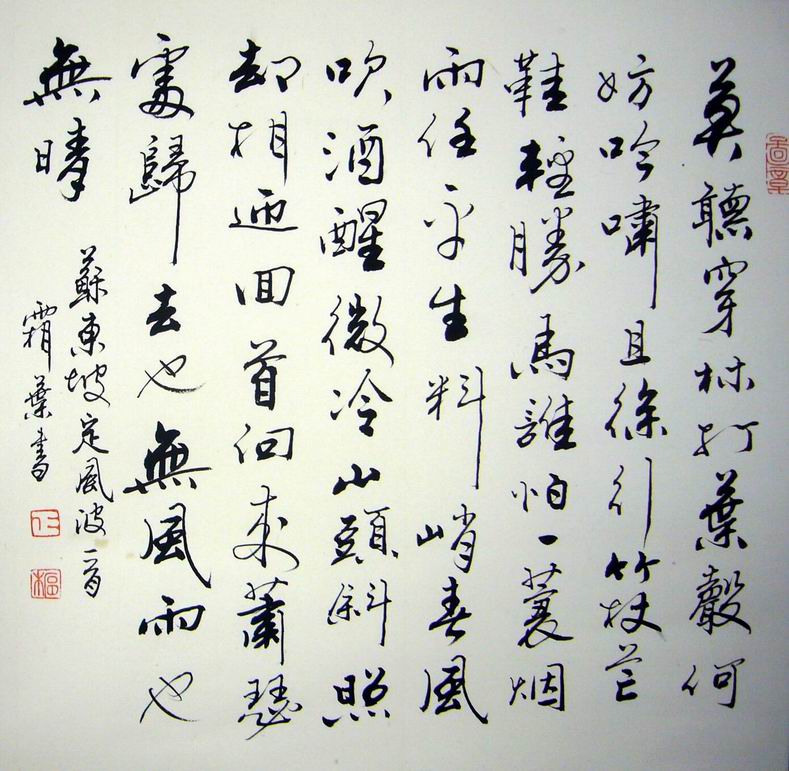 莫聽穿林打葉聲何
妨吟嘯且徐行竹杖芒
鞋輕勝馬誰怕一蓑烟
雨任平生料峭春風
吹酒醒微冷山頭斜照
却相迎回首向來蕭瑟
處歸去也無風雨也
無晴
蘇東坡定風波一首
霜葉書